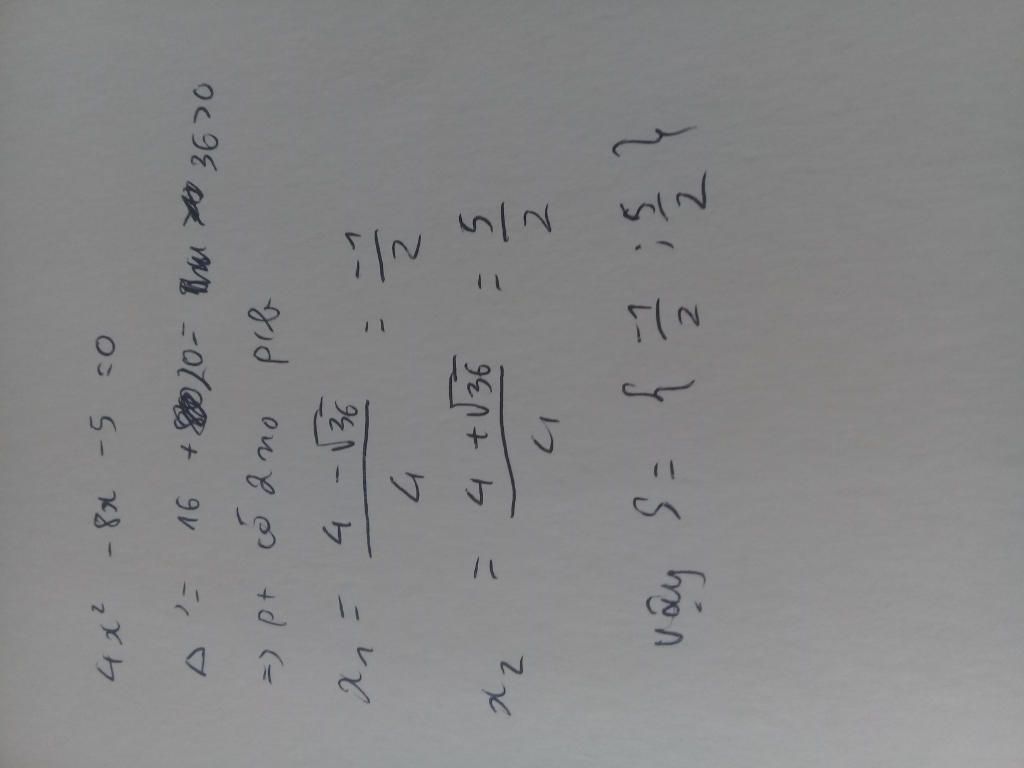 4x² - 8x - 5 = 0
Δ' = 16 + 20 = 36 > 0
=> pt có 2 no pb
x₁ = (4 - √36)/4 = -1/2
x₂ = (4 + √36)/4 = 5/2
vậy S = { -1/2 ; 5/2 }